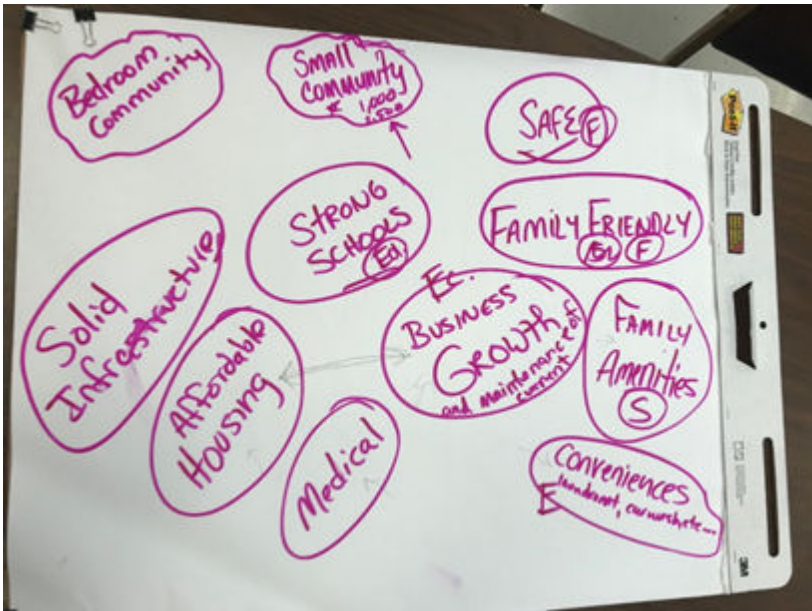 Bedroom
Community
Small
Community
1,000
2,500
SAFE F
STRONG
SCHOOLS
Ed
FAMILY FRIENDLY
F
Solid
Infrastructure
Affordable
Housing
Ec.
BUSINESS
GROWTH
and maintenance of
current
FAMILY
Amenities
S
Medical
Conveniences
E laundromat, carwash, etc...
Post-it
3M